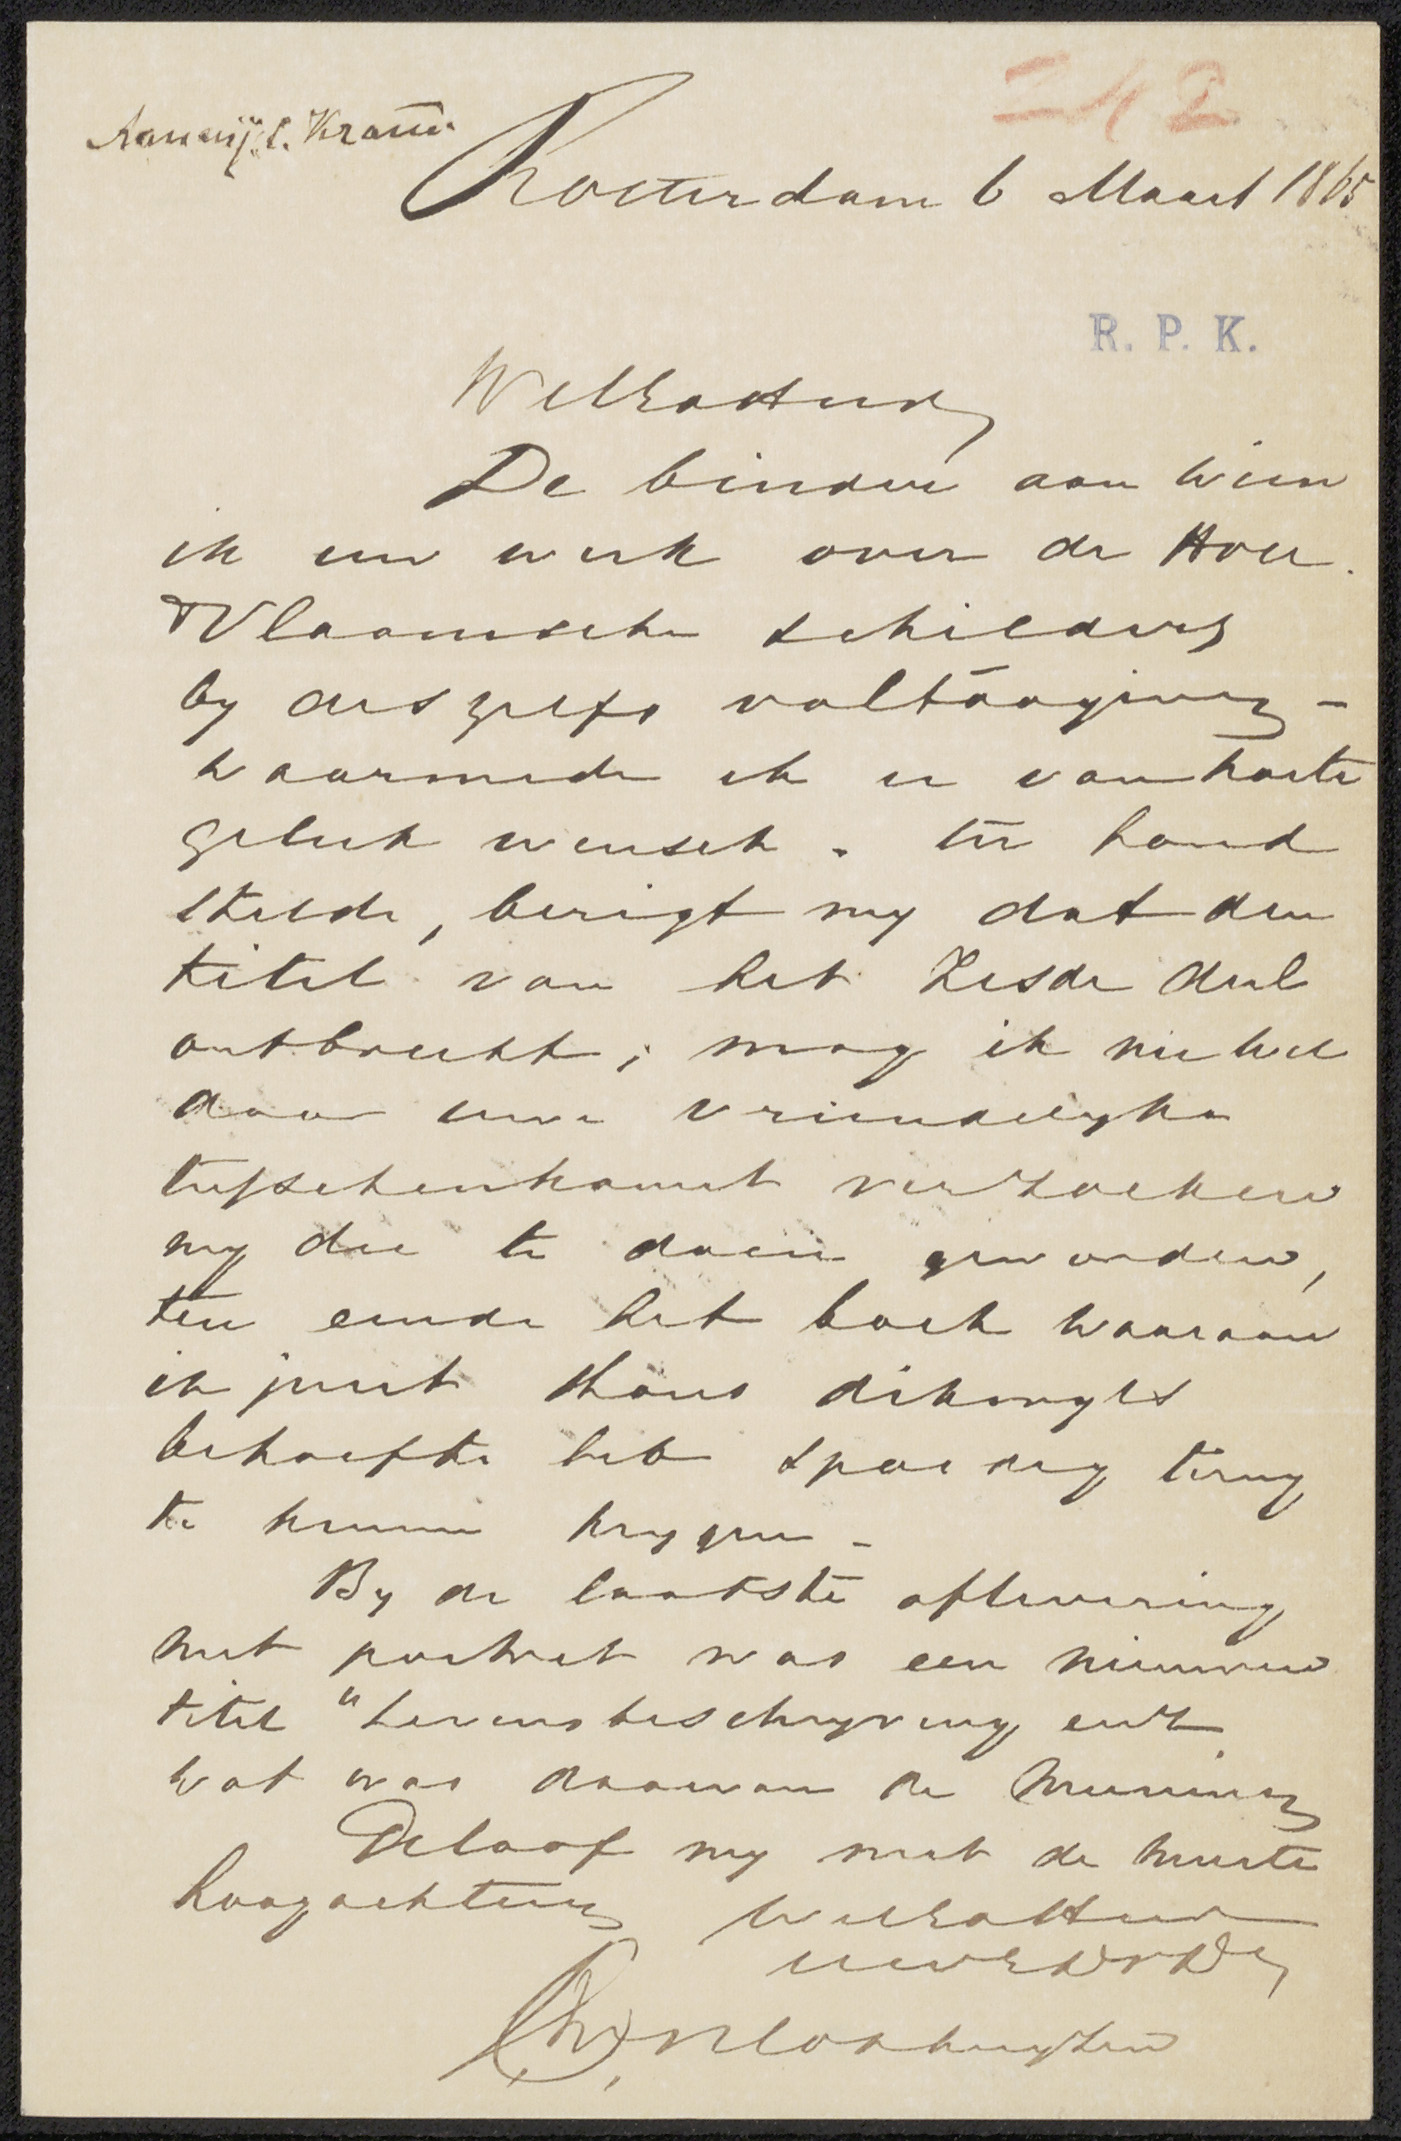 242
Aanwijz. C. Kramm
Rotterdam 6 Maart 1865
R. P. K.
WelEdHeer,
De binder aan wien
ik uw werk over de Holl.
& Vlaamsche schilders
by deszelfs voltooijing –
waarmede ik u van harte
geluk wensch – ter hand
stelde, berigt my dat den
titel van het Zesde deel
ontbreekt; mag ik nu wel
door uwe vriendelyke
tusschenkomst verzoeken
my die te doen geworden,
ten einde het boek waaraan
ik juist thans dikwyls
behoefte heb spoedig terug
te kunnen krygen –
By de laatste aflevering
met portret was een nieuwen
titel "Levensbeschryving enz
wat was daarvan de meening
Geloof my met de meeste
hoogachting WelEdHeer
UwEdDvDr